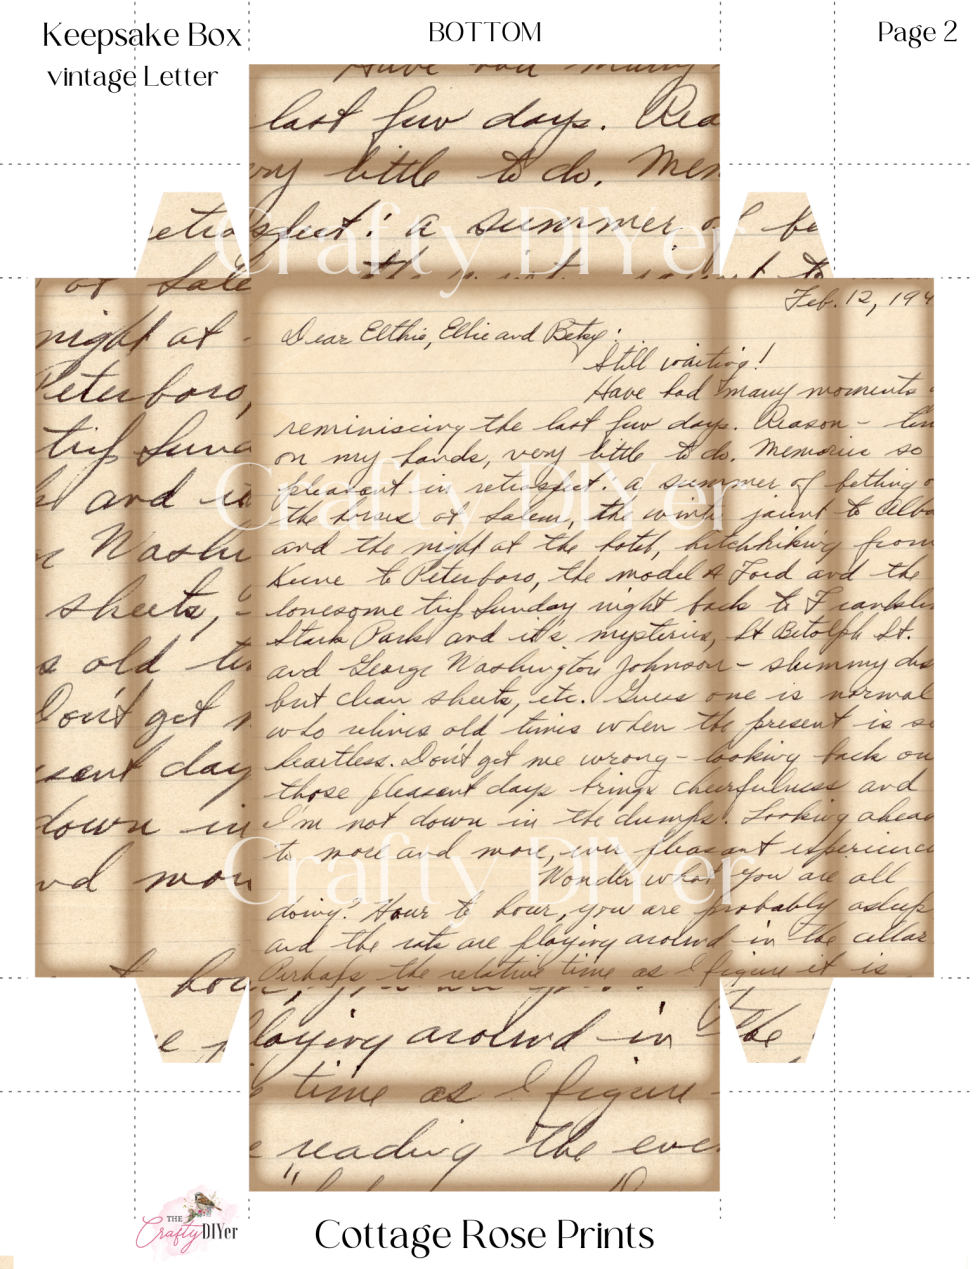 Keepsake Box
vintage Letter
BOTTOM
Page 2
Have had many
last few days. Rea
ry little to do. Mem
etro
spect: a summer of be
Crafty DIYer
of Sale
night at
Peterboro,
trip Sunda
and it
n Washi
sheets,
s old tim
Don't get
sant day
down in
nd mor
Feb. 12, 194
Dear Elthie, Ellie and Betsy:
Still waiting!
Have had many moments
reminiscing the last few days. Reason - tim
on my hands, very little to do. Memories so
pleasant in retrospect: a summer of betting o
the horses at Salem, the winter jaunt to Alba
and the night at the hotel, hitchhiking from
Keene to Peterboro, the model A Ford and the
lonesome trip Sunday night back to Franklin
Stark Park and it's mysteries, St Botolph St.
and George Washington Johnson - slummy dis
but clean sheets, etc. Guess one is normal
who relives old times when the present is so
heartless. Don't get me wrong - looking back on
those pleasant days brings cheerfulness and
I'm not down in the dumps. Looking ahead
to more and more, ever pleasant experienc
Wonder what you are all
doing? Hour to hour, you are probably asleep
and the rats are playing around in the cellar
Perhaps the relative time as I figure it is
Crafty DIYer
Crafty DIYer
hou
laying around in the
time as I figure
reading the eve
THE
CraftyDIYer
Cottage Rose Prints